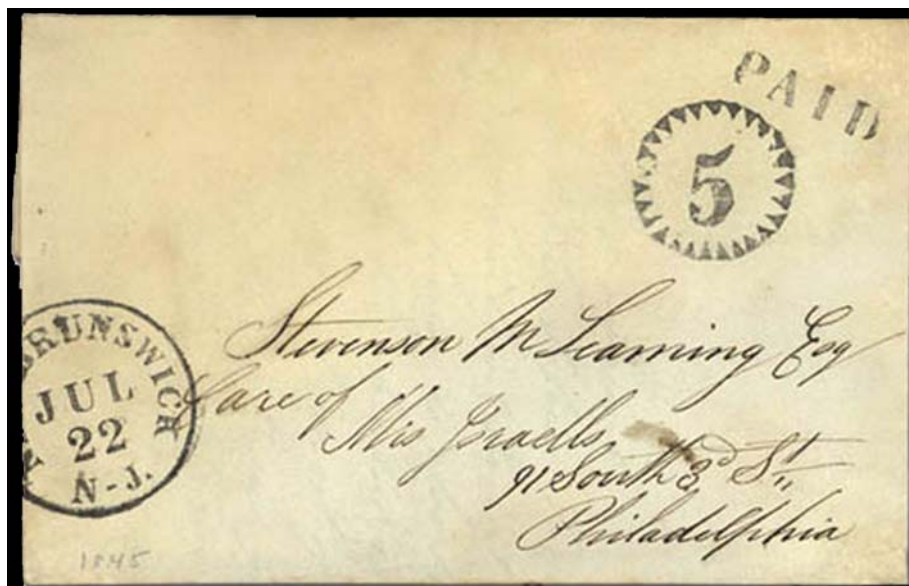 PAID
5
BRUNSWICK
JUL
22
N-J.
Stevenson M Leaming Esq
Care of
Mrs Israells
91 South 3d St.
Philadelphia
1845